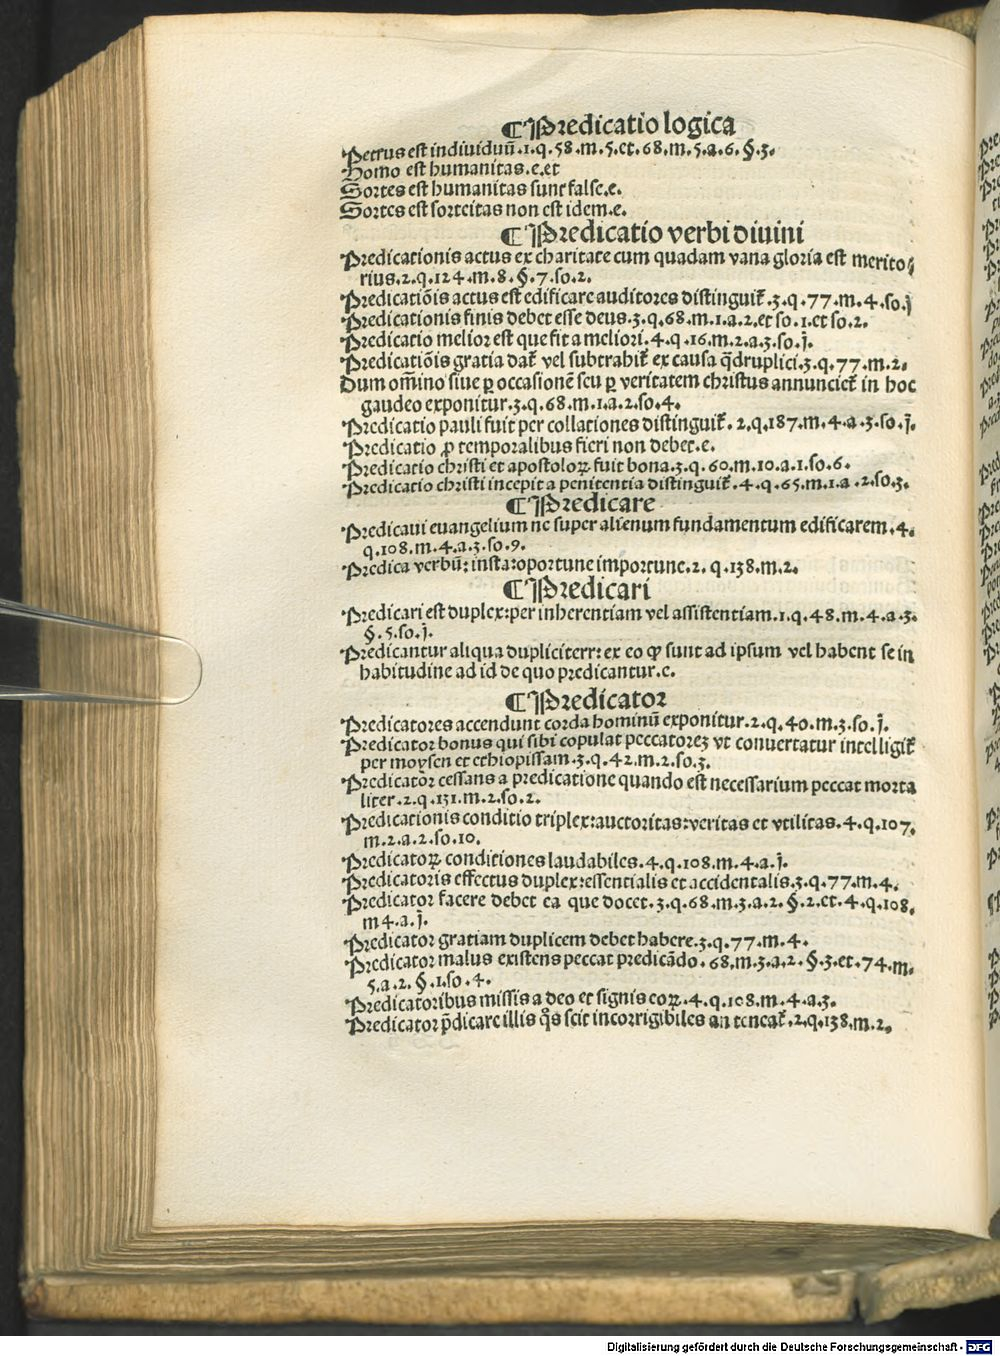 ¶ Predicatio logica
Petrus est indiuiduū.1.q.58.m.5.et.68.m.5.a.6.§.3.
Homo est humanitas.e.et
Sortes est humanitas sunt false.e.
Sortes est sorteitas non est idem.e.
¶ Predicatio verbi diuini
Predicationis actus ex charitate cum quadam vana gloria est merito⸗
rius.2.q.124.m.8.§.7.so.2.
Predicatiōis actus est edificare auditores distinguit̄.3.q.77.m.4.so.j
Predicationis finis debet esse deus.3.q.68.m.1.a.2.et so.1.et so.2.
Predicatio melior est que fit a meliori.4.q.16.m.2.a.3.so.j.
Predicatiōis gratia dat̄ vel subtrahit̄ ex causa q̄druplici.3.q.77.m.2.
Dum om̄ino siue ꝑ occasionē seu ꝑ veritatem christus annunciet̄ in hoc
gaudeo exponitur.3.q.68.m.1.a.2.so.4.
Predicatio pauli fuit per collationes distinguit̄. 2.q.187.m.4.a.3.so.j.
Predicatio ꝓ temporalibus fieri non debet.e.
Predicatio christi et apostoloꝝ fuit bona.3.q.60.m.10.a.1.so.6.
Predicatio christi incepit a penitentia distinguit̄.4.q.65.m.1.a.2.so.3.
¶ Predicare
Predicaui euangelium ne super alienum fundamentum edificarem.4.
q.108.m.4.a.3.so.9.
Predica verbū: insta:oportune importune.2.q.138.m.2.
¶ Predicari
Predicari est duplex:per inherentiam vel assistentiam.1.q.48.m.4.a.3.
§.5.so.j.
Predicantur aliqua dupliciterr: ex eo ꝙ sunt ad ipsum vel habent se in
habitudine ad id de quo predicantur.e.
¶ Predicator
Predicatores accendunt corda hominū exponitur.2.q.40.m.3.so.j.
Predicator bonus qui sibi copulat peccatoreꝫ vt conuertatur intelligit̄
per moysen et ethiopissam.3.q.42.m.2.so.3.
Predicator cessans a predicatione quando est necessarium peccat morta
liter.2.q.131.m.2.so.2.
Predicationis conditio triplex:auctoritas:veritas et vtilitas.4.q.107.
m.2.a.2.so.10.
Predicatoꝝ conditiones laudabiles.4.q.108.m.4.a.j.
Predicatoris effectus duplex:essentialis et accidentalis.3.q.77.m.4.
Predicator facere debet ea que docet.3.q.68.m.3.a.2.§.2.et.4.q.108.
m4.a.j.
Predicator gratiam duplicem debet habere.3.q.77.m.4.
Predicator malus existens peccat predicādo.68.m.3.a.2.§.3.et.74.m.
5.a.2.§.1.so.4.
Predicatoribus missis a deo et signis eoꝝ.4.q.108.m.4.a.3.
Predicator p̄dicare illis q̊s scit incorrigibiles an teneat̄.2.q.138.m.2.
Digitalisierung gefördert durch die Deutsche Forschungsgemeinschaft - DFG